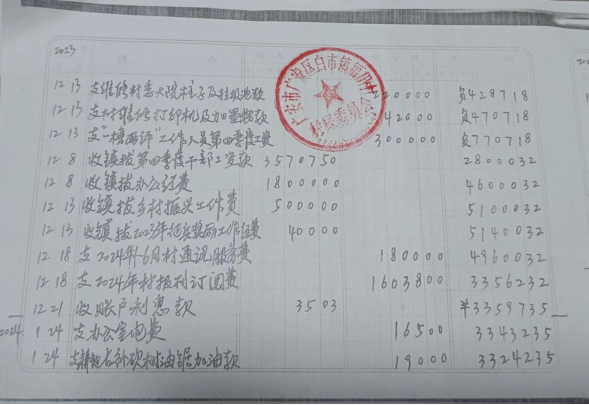 2023
12 13 支维修村委火院柱子及垃圾池款 20000 负428718
12 13 支村维修打印机及加墨粉款 42000 负470718
12 13 支"一榜两评"工作人员第四季度工资 300000 负770718
12 8 收镇拨第四季度干部工资款 3570750 2800032
12 8 收镇拨办公经费 1800000 4600032
12 13 收镇拨乡村振兴工作费 500000 5100032
12 13 收镇拨2023年征兵奖励工作经费 40000 5140032
12 18 支2024年1-6月村通讯服务费 180000 4960032
12 18 支2024年村报刊订阅费 1603800 3356232
12 21 收账户利息款 3503 ¥3359735
2024 1 24 支办公室电费 16500 3343235
1 24 支 油锯加油款 19000 3324235
广安市广安区白市镇 村
村民委员会